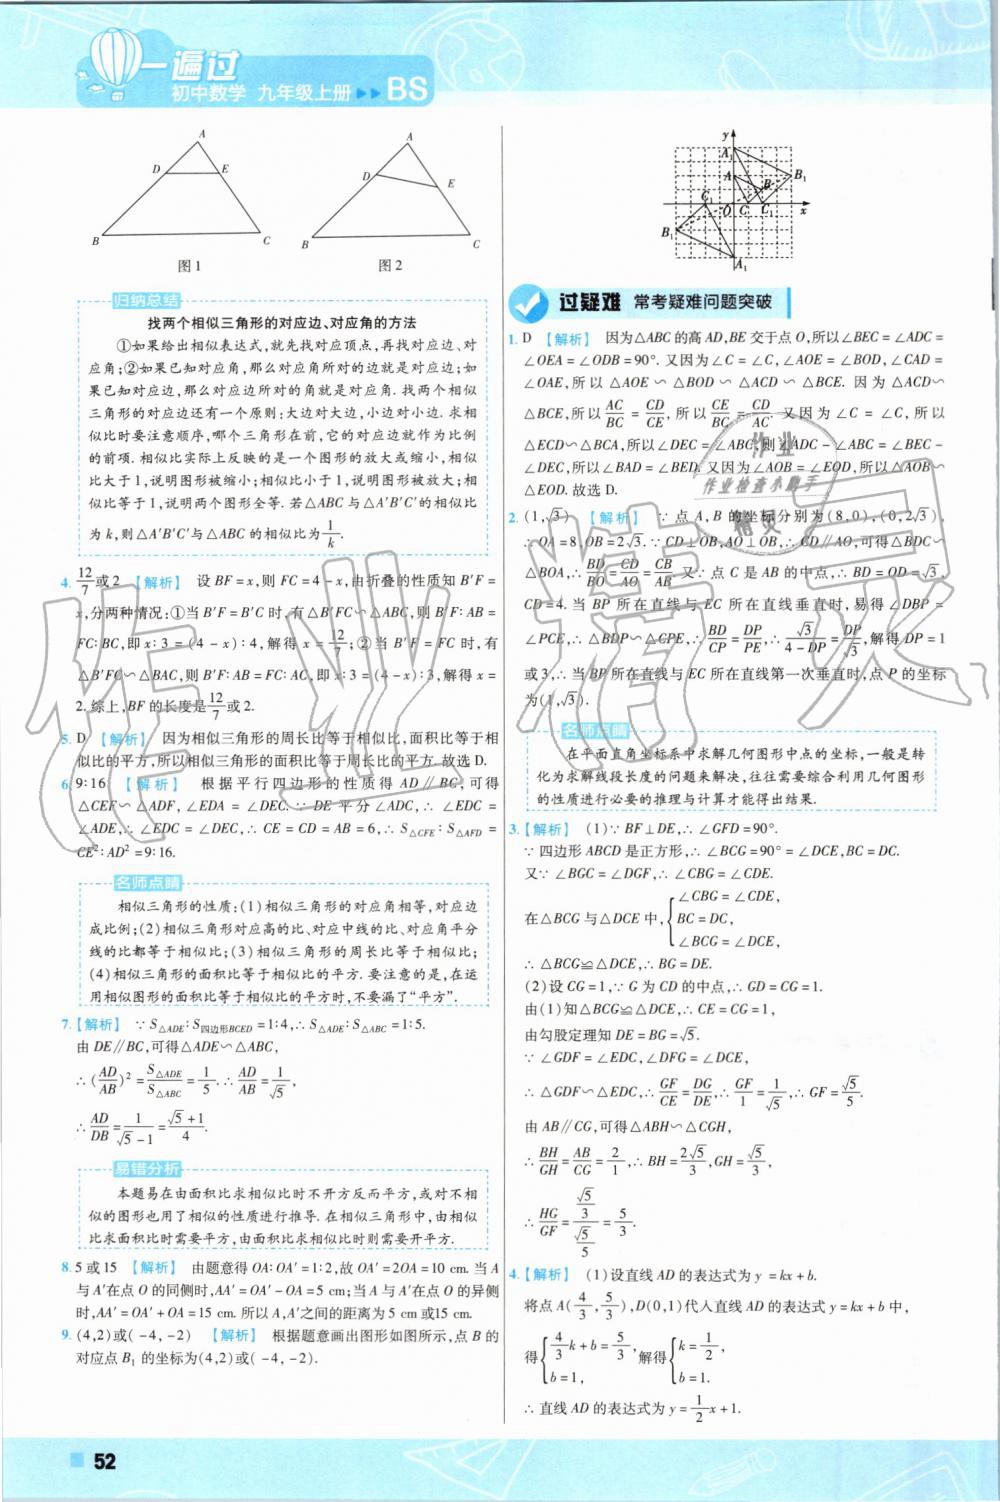 一遍过
初中数学 九年级上册 ▸▸ BS
A
D
E
B
C
图1
A
D
E
B
C
图2
归纳总结
找两个相似三角形的对应边、对应角的方法
①如果给出相似表达式,就先找对应顶点,再找对应边、对
应角;②如果已知对应角,那么对应角所对的边就是对应边;如
果已知对应边,那么对应边所对的角就是对应角. 找两个相似
三角形的对应边还有一个原则:大边对大边,小边对小边. 求相
似比时要注意顺序,哪个三角形在前,它的对应边就作为比例
的前项. 相似比实际上反映的是一个图形的放大或缩小,相似
比大于1,说明图形被缩小;相似比小于1,说明图形被放大;相
似比等于1,说明两个图形全等. 若△ABC与△A′B′C′的相似比
为k,则△A′B′C′与△ABC的相似比为1/k.
4. 12/7或2 【解析】 设BF=x,则FC=4-x,由折叠的性质知B′F=
x,分两种情况:①当B′F=B′C时,有△B′FC∽△ABC,则B′F∶AB=
FC∶BC,即x∶3=(4-x)∶4,解得x=12/7;②当B′F=FC时,有
△B′FC∽△BAC,则B′F∶AB=FC∶AC,即x∶3=(4-x)∶3,解得x=
2. 综上,BF的长度是12/7或2.
5. D 【解析】 因为相似三角形的周长比等于相似比,面积比等于相
似比的平方,所以相似三角形的面积比等于周长比的平方. 故选D.
6. 9∶16 【解析】 根据平行四边形的性质得AD∥BC,可得
△CEF∽△ADF,∠EDA=∠DEC. ∵DE平分∠ADC,∴∠EDC=
∠ADE,∴∠EDC=∠DEC,∴CE=CD=AB=6,∴S△CFE∶S△AFD=
CE²∶AD²=9∶16.
名师点睛
相似三角形的性质:(1)相似三角形的对应角相等,对应边
成比例;(2)相似三角形对应高的比、对应中线的比、对应角平分
线的比都等于相似比;(3)相似三角形的周长比等于相似比;
(4)相似三角形的面积比等于相似比的平方. 要注意的是,在运
用相似图形的面积比等于相似比的平方时,不要漏了“平方”.
7.【解析】 ∵S△ADE∶S四边形BCED=1∶4,∴S△ADE∶S△ABC=1∶5.
由DE∥BC,可得△ADE∽△ABC,
∴(AD/AB)²=S△ADE/S△ABC=1/5.∴AD/AB=1/√5,
∴AD/DB=1/(√5-1)=(√5+1)/4.
易错分析
本题易在由面积比求相似比时不开方反而平方,或对不相
似的图形也用了相似的性质进行推导. 在相似三角形中,由相似
比求面积比时需要平方,由面积比求相似比时则需要开平方.
8. 5或15 【解析】 由题意得OA∶OA′=1∶2,故OA′=2OA=10 cm. 当A
与A′在点O的同侧时,AA′=OA′-OA=5 cm;当A与A′在点O的异侧
时,AA′=OA′+OA=15 cm. 所以A,A′之间的距离为5 cm或15 cm.
9. (4,2)或(-4,-2) 【解析】 根据题意画出图形如图所示,点B的
对应点B₁的坐标为(4,2)或(-4,-2).
y
A₁
A
B
B₁
C₁
O
C
C₁
x
B₁
A₁
过疑难 常考疑难问题突破
1. D 【解析】 因为△ABC的高AD,BE交于点O,所以∠BEC=∠ADC=
∠OEA=∠ODB=90°. 又因为∠C=∠C,∠AOE=∠BOD,∠CAD=
∠OAE,所以△AOE∽△BOD∽△ACD∽△BCE. 因为△ACD∽
△BCE,所以AC/BC=CD/CE,所以CE/BC=CD/AC. 又因为∠C=∠C,所以
△ECD∽△BCA,所以∠DEC=∠ABC,则∠ADC-∠ABC=∠BEC-
∠DEC,所以∠BAD=∠BED. 又因为∠AOB=∠EOD,所以△AOB∽
△EOD. 故选D.
2. (1,√3) 【解析】 ∵点A,B的坐标分别为(8,0),(0,2√3),
∴OA=8,OB=2√3. ∵CD⊥OB,AO⊥OB,∴CD∥AO,可得△BDC∽
△BOA,∴BD/BO=CD/AO=CB/AB. 又∵点C是AB的中点,∴BD=OD=√3,
CD=4. 当BP所在直线与EC所在直线垂直时,易得∠DBP=
∠PCE,∴△BDP∽△CPE,∴BD/CP=DP/PE,∴√3/(4-DP)=DP/√3,解得DP=1
或3,∴当BP所在直线与EC所在直线第一次垂直时,点P的坐标
为(1,√3).
名师点睛
在平面直角坐标系中求解几何图形中点的坐标,一般是转
化为求解线段长度的问题来解决,往往需要综合利用几何图形
的性质进行必要的推理与计算才能得出结果.
3.【解析】 (1)∵BF⊥DE,∴∠GFD=90°.
∵四边形ABCD是正方形,∴∠BCG=90°=∠DCE,BC=DC.
又∵∠BGC=∠DGF,∴∠CBG=∠CDE.
∠CBG=∠CDE,
在△BCG与△DCE中,{BC=DC,
∠BCG=∠DCE,
∴△BCG≌△DCE,∴BG=DE.
(2)设CG=1,∵G为CD的中点,∴GD=CG=1.
由(1)知△BCG≌△DCE,∴CE=CG=1,
由勾股定理知DE=BG=√5.
∵∠GDF=∠EDC,∠DFG=∠DCE,
∴△GDF∽△EDC,∴GF/CE=DG/DE,∴GF/1=1/√5,∴GF=√5/5.
由AB∥CG,可得△ABH∽△CGH,
∴BH/GH=AB/CG=2/1,∴BH=2√5/3,GH=√5/3,
∴HG/GF=(√5/3)/(√5/5)=5/3.
4.【解析】 (1)设直线AD的表达式为y=kx+b.
将点A(4/3,5/3),D(0,1)代入直线AD的表达式y=kx+b中,
得{4/3k+b=5/3, b=1, 解得{k=1/2, b=1.
∴直线AD的表达式为y=1/2x+1.
52
作业
作业检查小助手
精灵
作业精灵